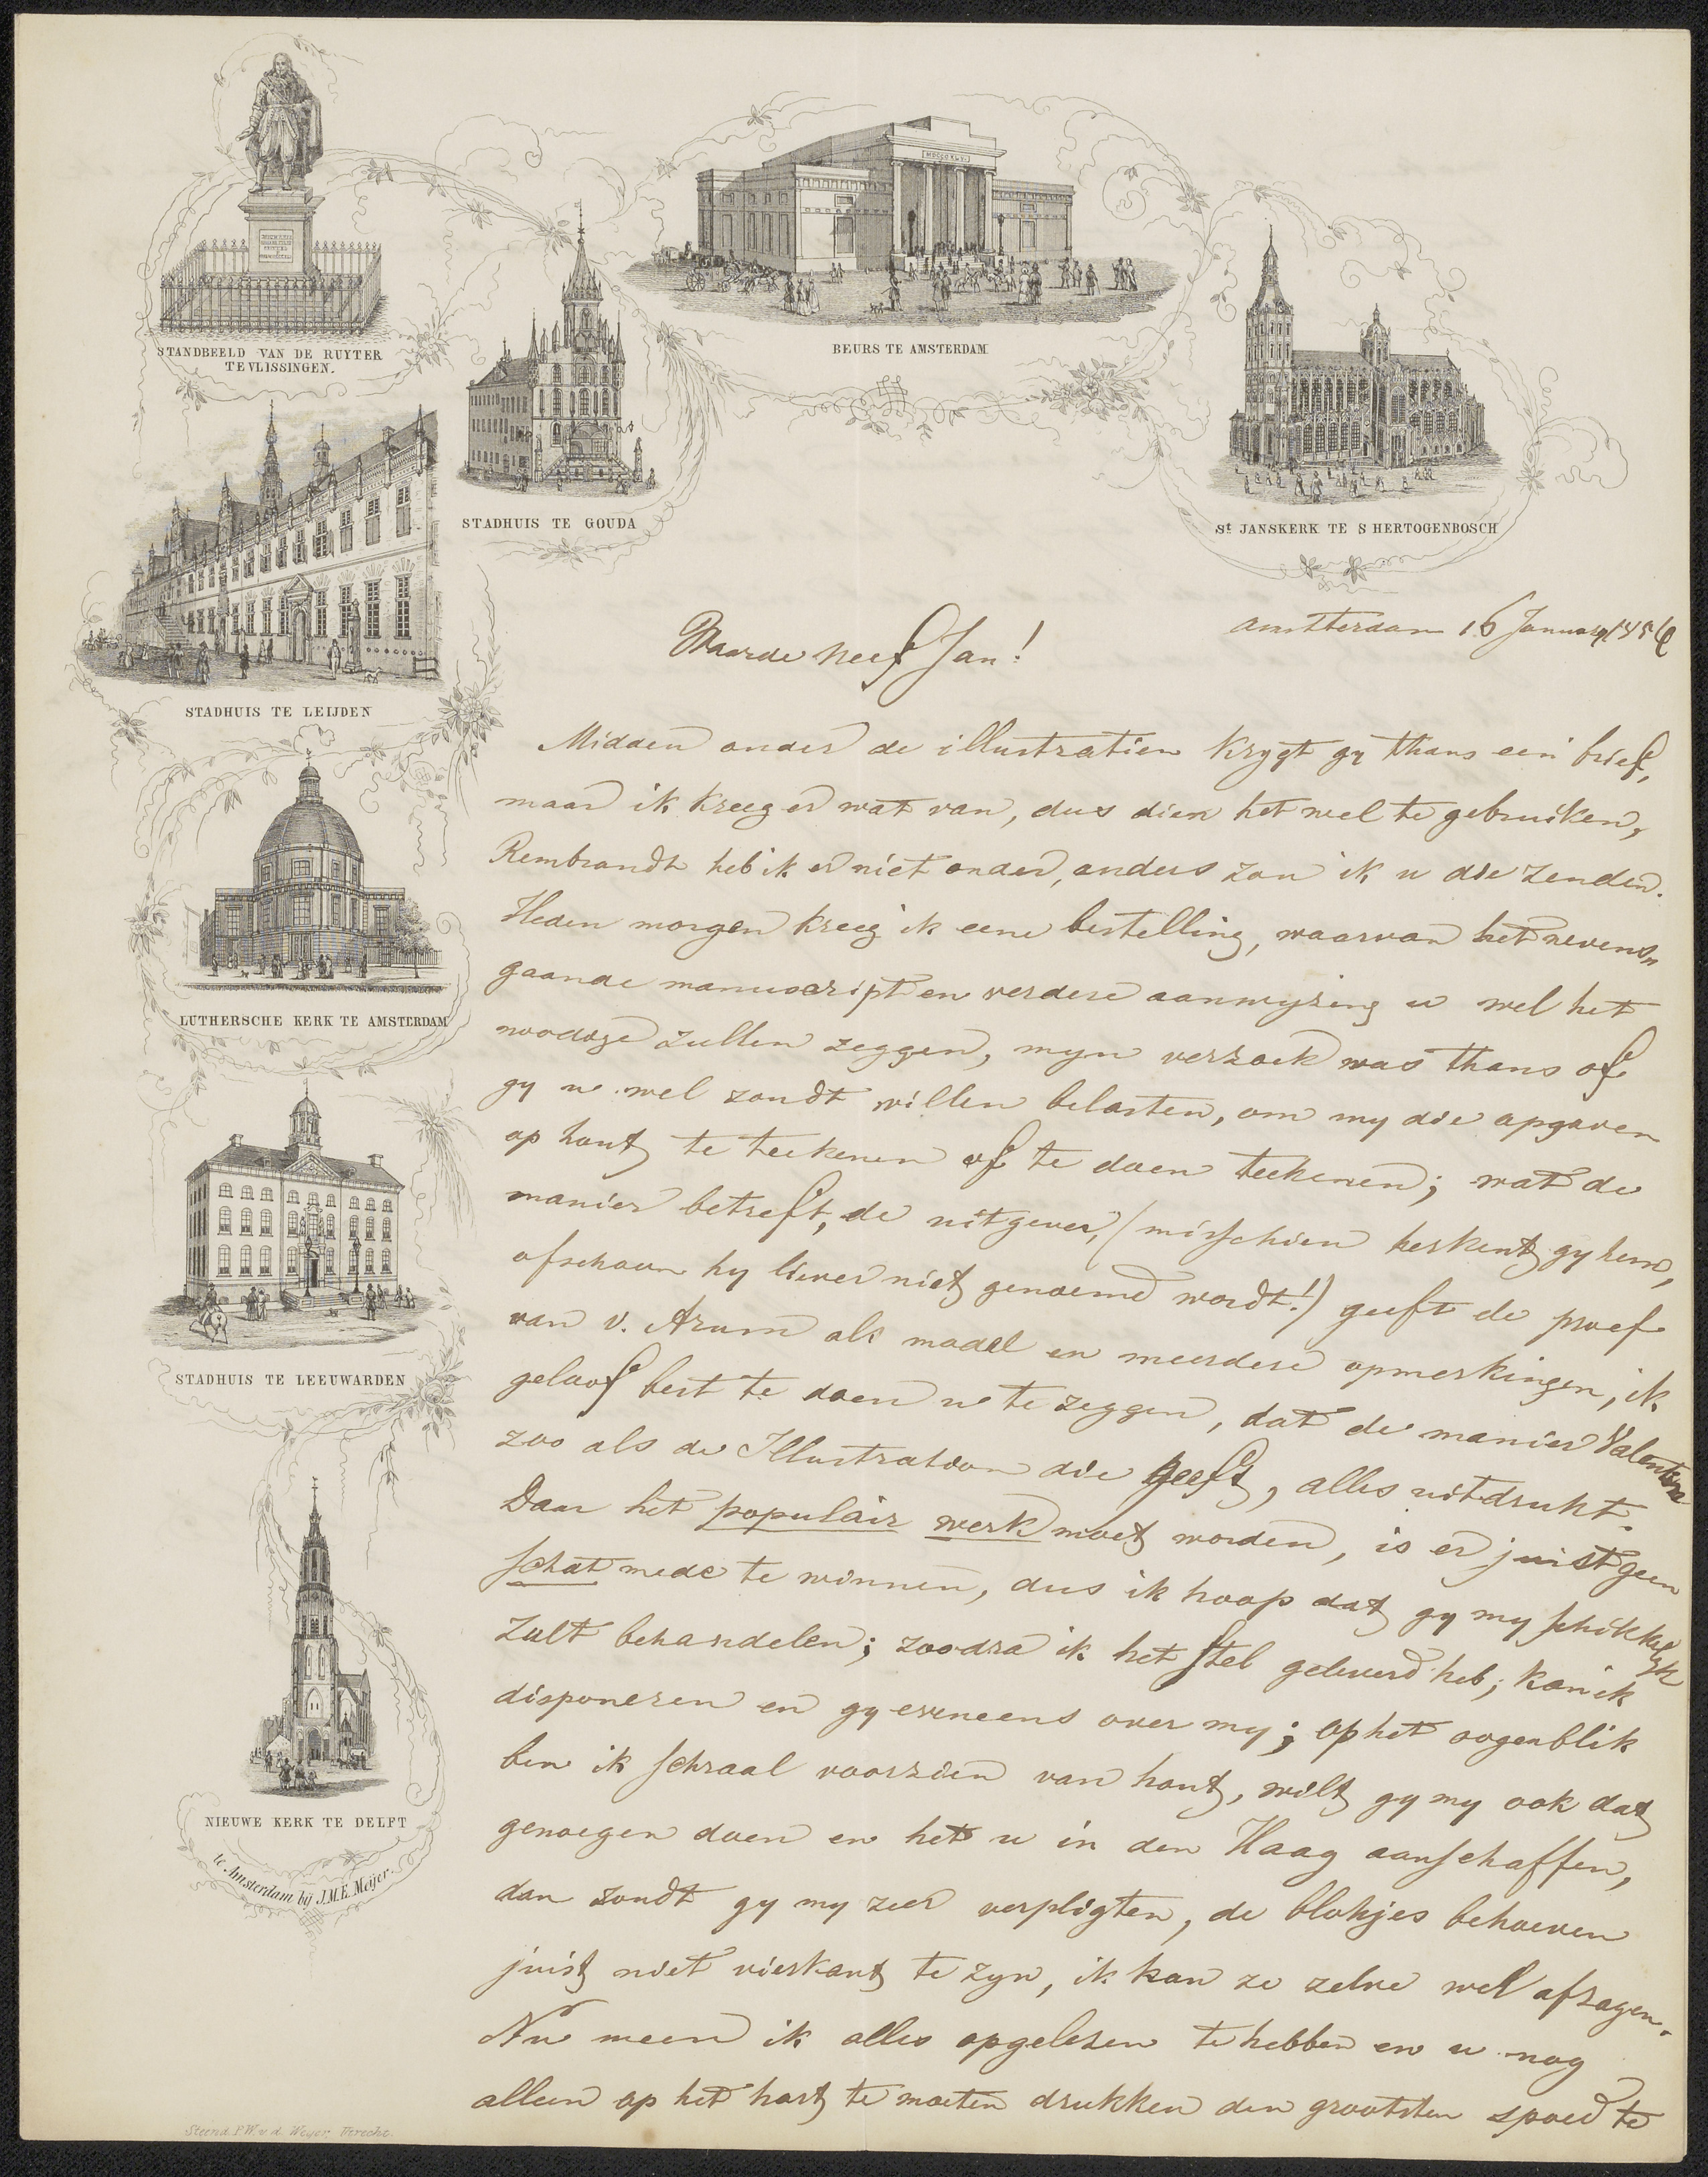 STANDBEELD VAN DE RUYTER
TE VLISSINGEN.
STADHUIS TE GOUDA
BEURS TE AMSTERDAM
St JANSKERK TE S HERTOGENBOSCH
STADHUIS TE LEIJDEN
LUTHERSCHE KERK TE AMSTERDAM
STADHUIS TE LEEUWARDEN
NIEUWE KERK TE DELFT
te Amsterdam bij J.M.E. Meijer.
Steend. P.W. v.d. Weijer, Utrecht.
Amsterdam 16 January 1856
Waarde neef Jan!
Midden onder de illustratien krygt gy thans een brief,
maar ik kreeg er wat van, dus dien het wel te gebruiken,
Rembrandt heb ik er niet onder, anders zou ik u die zenden.
Heden morgen kreeg ik eene bestelling, waarvan het nevens
gaande manuscript en verdere aanwyzing u wel het
noodige zullen zeggen, myn verzoek was thans of
gy u wel zoudt willen belasten, om my die opgaven
op hout te teekenen of te doen teekenen; wat de
manier betreft, de uitgever, (misschien herkent gy hem,
ofschoon hy liever niet genoemd wordt!) geeft de proef
van v. Arum als model en meerdere opmerkingen, ik
geloof best te doen u te zeggen, dat de manier Valentin
zoo als de Illustration die geeft, alles uitdrukt.
Daar het populair werk moet worden, is er juist geen
schat mede te winnen, dus ik hoop dat gy my schikkelyk
zult behandelen; zoodra ik het stel geleverd heb, kan ik
disponeren en gy eveneens over my; op het oogenblik
ben ik schraal voorzien van hout, wilt gy my ook dat
genoegen doen en het u in den Haag aanschaffen,
dan zoudt gy my zeer verpligten, de blokjes behoeven
juist niet vierkant te zyn, ik kan ze zelve wel afzagen.
Nu meen ik alles opgelezen te hebben en u nog
alleen op het hart te moeten drukken den grootsten spoed te